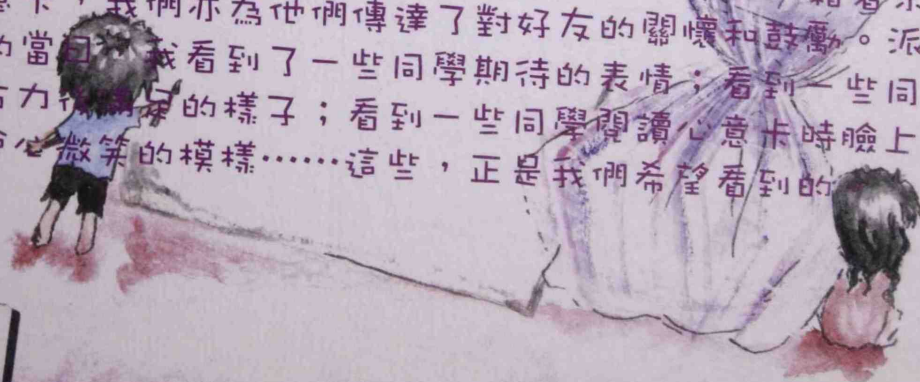 卡，我們亦為他們傳達了對好友的關懷和鼓勵。派
的當日，我看到了一些同學期待的表情；看到一些同
力後滿足的樣子；看到一些同學閱讀心意卡時臉上
微笑的模樣……這些，正是我們希望看到的